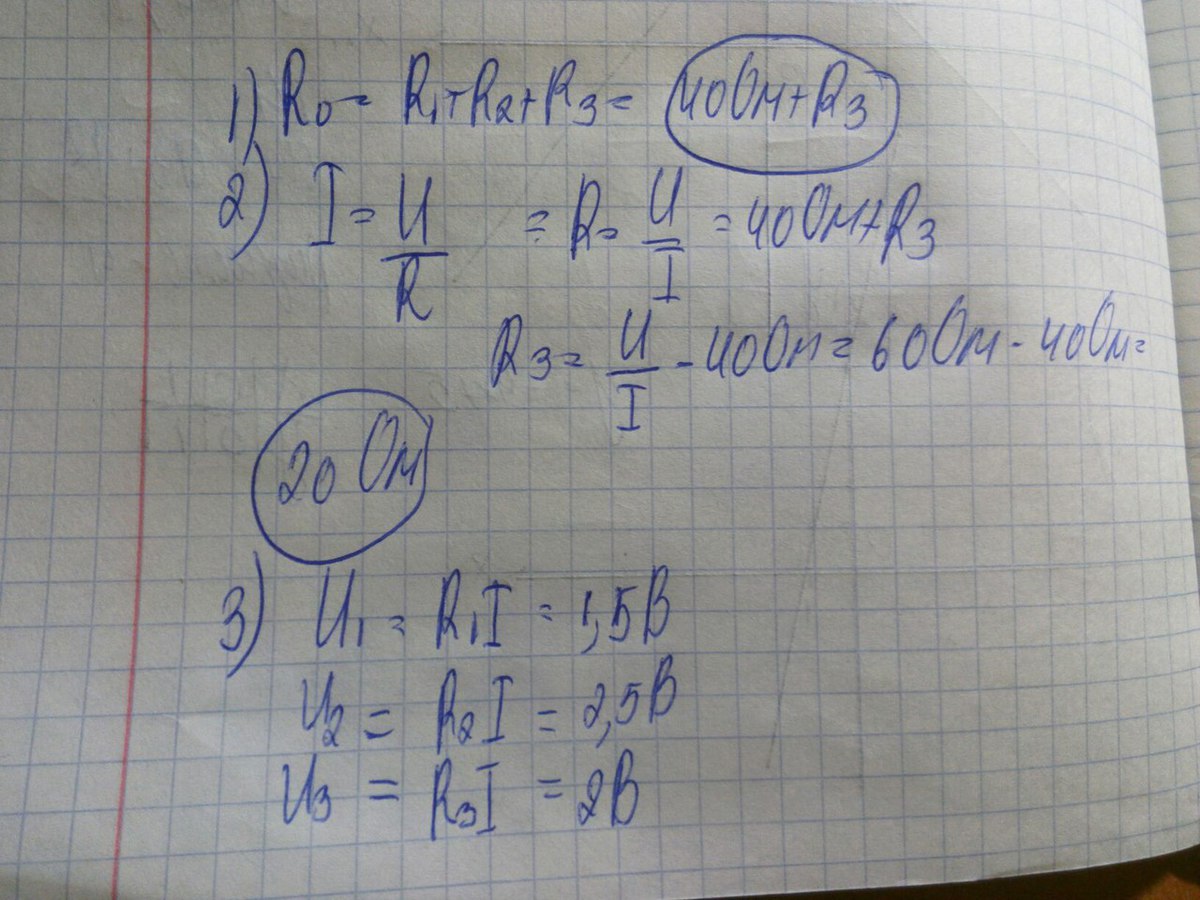 1) R₀ = R₁+R₂+R₃ = 40Ом+R₃
2) I = U/R = R = U/I = 40Ом+R₃
R₃ = U/I - 40Ом = 60Ом - 40Ом =
20 Ом
3) U₁ = R₁I = 1,5В
U₂ = R₂I = 2,5В
U₃ = R₃I = 2В